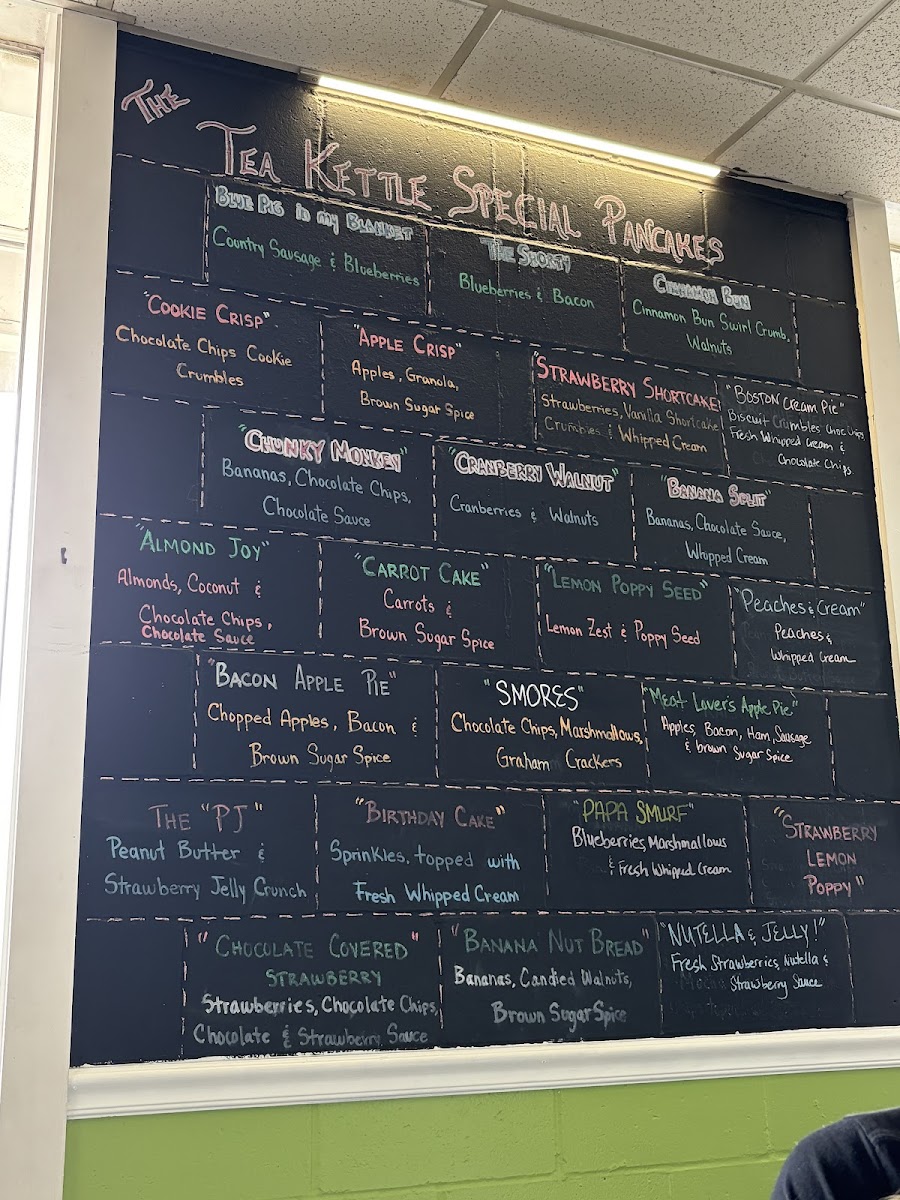 THE
TEA KETTLE SPECIAL PANCAKES
BLUE PIG in my BLANKET
Country Sausage & Blueberries
THE SHORTY
Blueberries & Bacon
CINNAMON BUN
Cinnamon Bun Swirl Crumb,
Walnuts
"COOKIE CRISP"
Chocolate Chips Cookie
Crumbles
"APPLE CRISP"
Apples, Granola,
Brown Sugar Spice
"STRAWBERRY SHORTCAKE"
Strawberries, Vanilla Shortcake
Crumbles & Whipped Cream
"BOSTON Cream Pie"
Biscuit Crumbles Choc Chips
Fresh Whipped cream &
Chocolate Chips
"CHUNKY MONKEY"
Bananas, Chocolate Chips,
Chocolate Sauce
"CRANBERRY WALNUT"
Cranberries & Walnuts
"BANANA SPLIT"
Bananas, Chocolate Sauce,
Whipped Cream
"ALMOND JOY"
Almonds, Coconut &
Chocolate Chips,
Chocolate Sauce
"CARROT CAKE"
Carrots &
Brown Sugar Spice
"LEMON POPPY SEED"
Lemon Zest & Poppy Seed
"Peaches & Cream"
Peaches &
Whipped Cream
"BACON APPLE PIE"
Chopped Apples, Bacon &
Brown Sugar Spice
"SMORES"
Chocolate Chips, Marshmallows,
Graham Crackers
"Meat Lover's Apple Pie"
Apples, Bacon, Ham, Sausage
& brown Sugar Spice
THE "PJ"
Peanut Butter &
Strawberry Jelly Crunch
"BIRTHDAY CAKE"
Sprinkles, topped with
Fresh Whipped Cream
"PAPA SMURF"
Blueberries, Marshmallows
& Fresh Whipped Cream
"STRAWBERRY
LEMON
POPPY"
"CHOCOLATE COVERED"
STRAWBERRY
Strawberries, Chocolate Chips,
Chocolate & Strawberry Sauce
"BANANA NUT BREAD"
Bananas, Candied Walnuts,
Brown Sugar Spice
"NUTELLA & JELLY!"
Fresh Strawberries, Nutella &
Strawberry Sauce